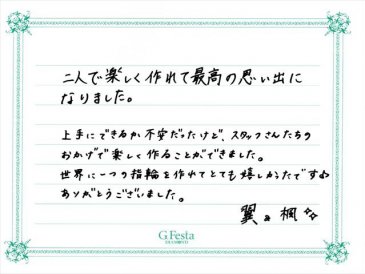 二人で楽しく作れて最高の思い出に
なりました。
上手にできるか不安だったけど、スタッフさんたちの
おかげで楽しく作ることができました。
世界に一つの指輪を作れてとても嬉しかったです♪
ありがとうございました。
翼 & 楓 ✧✧
G.Festa
DIAMOND